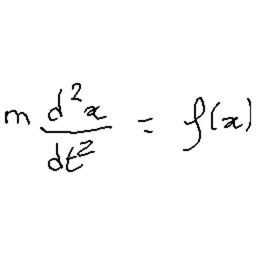 m d²x/dt² = f(x)